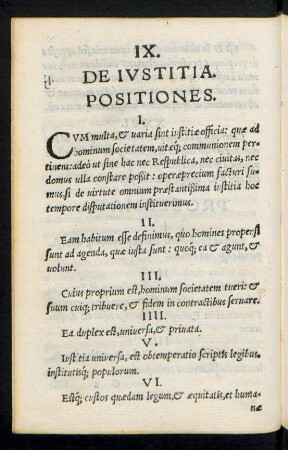 IX.
DE IVSTITIA.
POSITIONES.
I.
CVM multa, & varia sint iustitiæ officia: quæ ad
hominum societatem, vitæq; communionem per-
tinent: adeò ut sine hac nec Respublica, nec ciuitas, nec
domus ulla constare possit: operæprecium facturi su-
mus, si de virtute omnium præstantissima iustitia hoc
tempore disputationem instituerimus.
II.
Eam habitum esse definimus, quo homines propensi
sunt ad agenda, quæ iusta sunt: quoq; ea & agunt, &
uolunt.
III.
Cuius proprium est, hominum societatem tueri: &
suum cuiq; tribuere, & fidem in contractibus seruare.
IIII.
Ea duplex est, uniuersa, & priuata.
V.
Iustitia uniuersa, est obtemperatio scriptis legibus,
institutisq; populorum.
VI.
Estq; custos quædam legum, & æquitatis, et huma-
næ